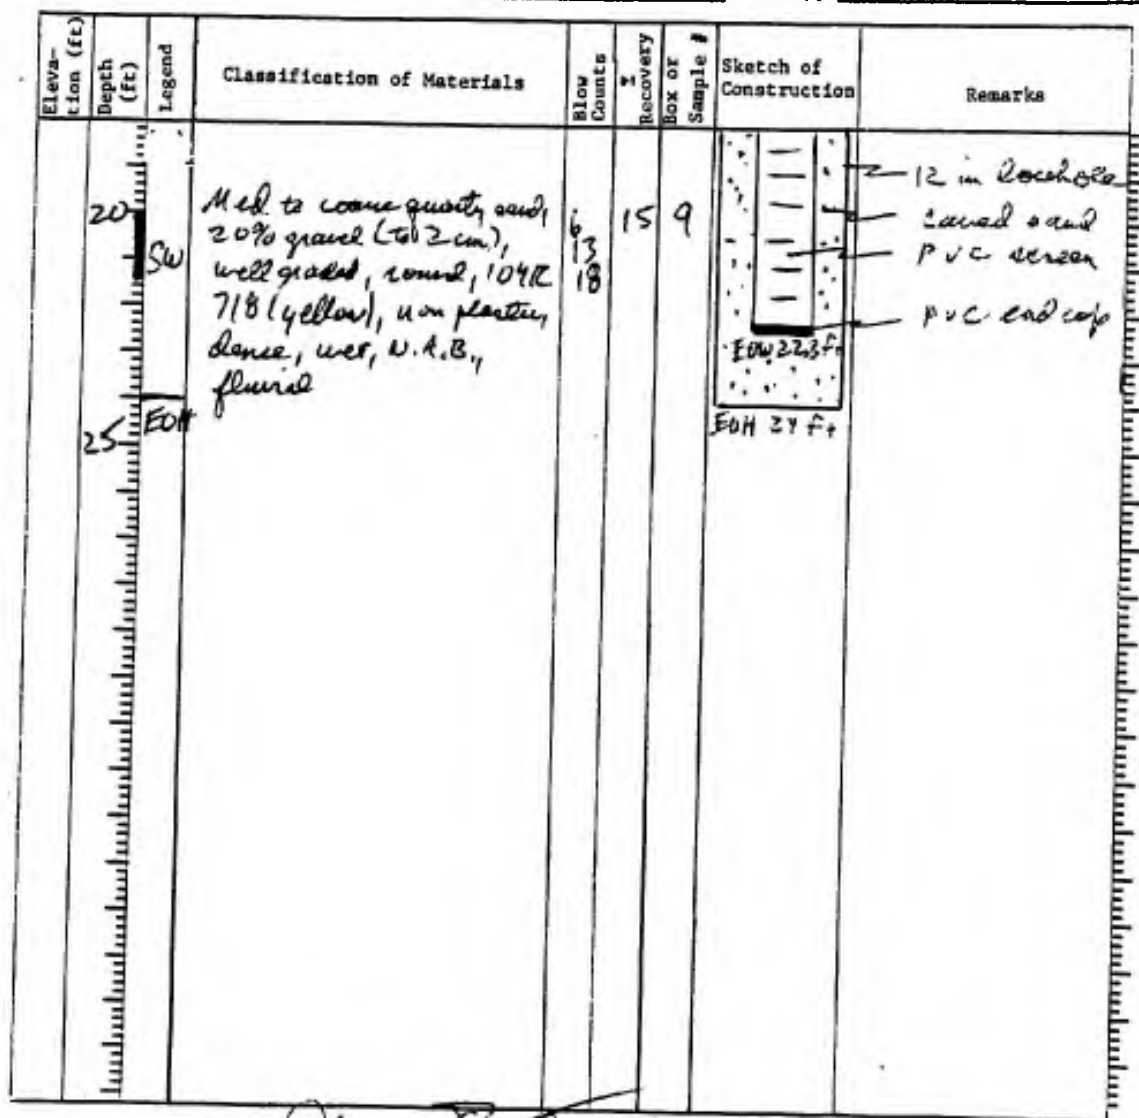 Eleva-
tion (ft)
Depth
(ft)
Legend
Classification of Materials
Blow
Counts
Recovery
Box or
Sample #
Sketch of
Construction
Remarks
20
25
SW
EOH
Med to coarse quartz sand,
20% gravel (to 2 cm.),
well graded, round, 10YR
7/8 (yellow), non plastic,
dense, wet, N.A.B.,
fluvial
6
13
18
15
9
EOW 22.3 ft
EOH 24 ft
12 in borehole
caved sand
PVC screen
PVC end cap